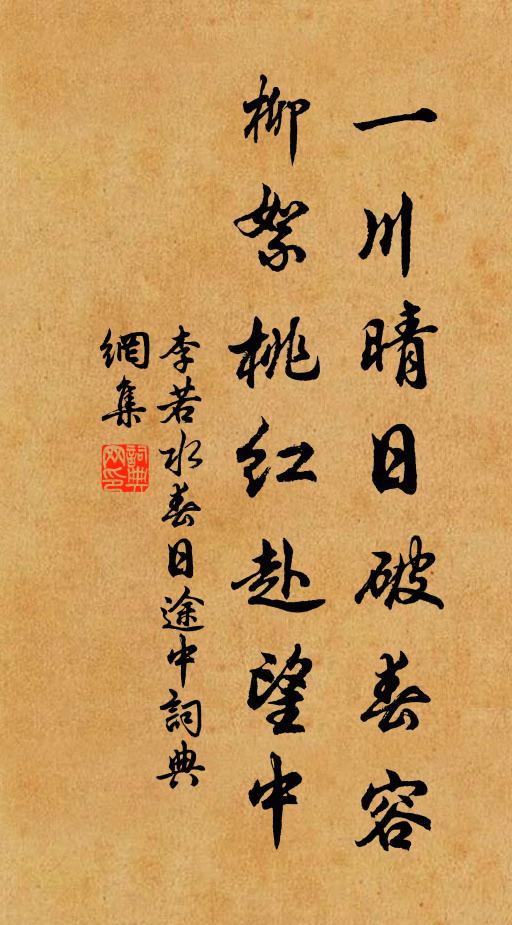 一川晴日破春容
柳絮桃红赴望中
李若水春日途中詞典
網集
詞典
网印